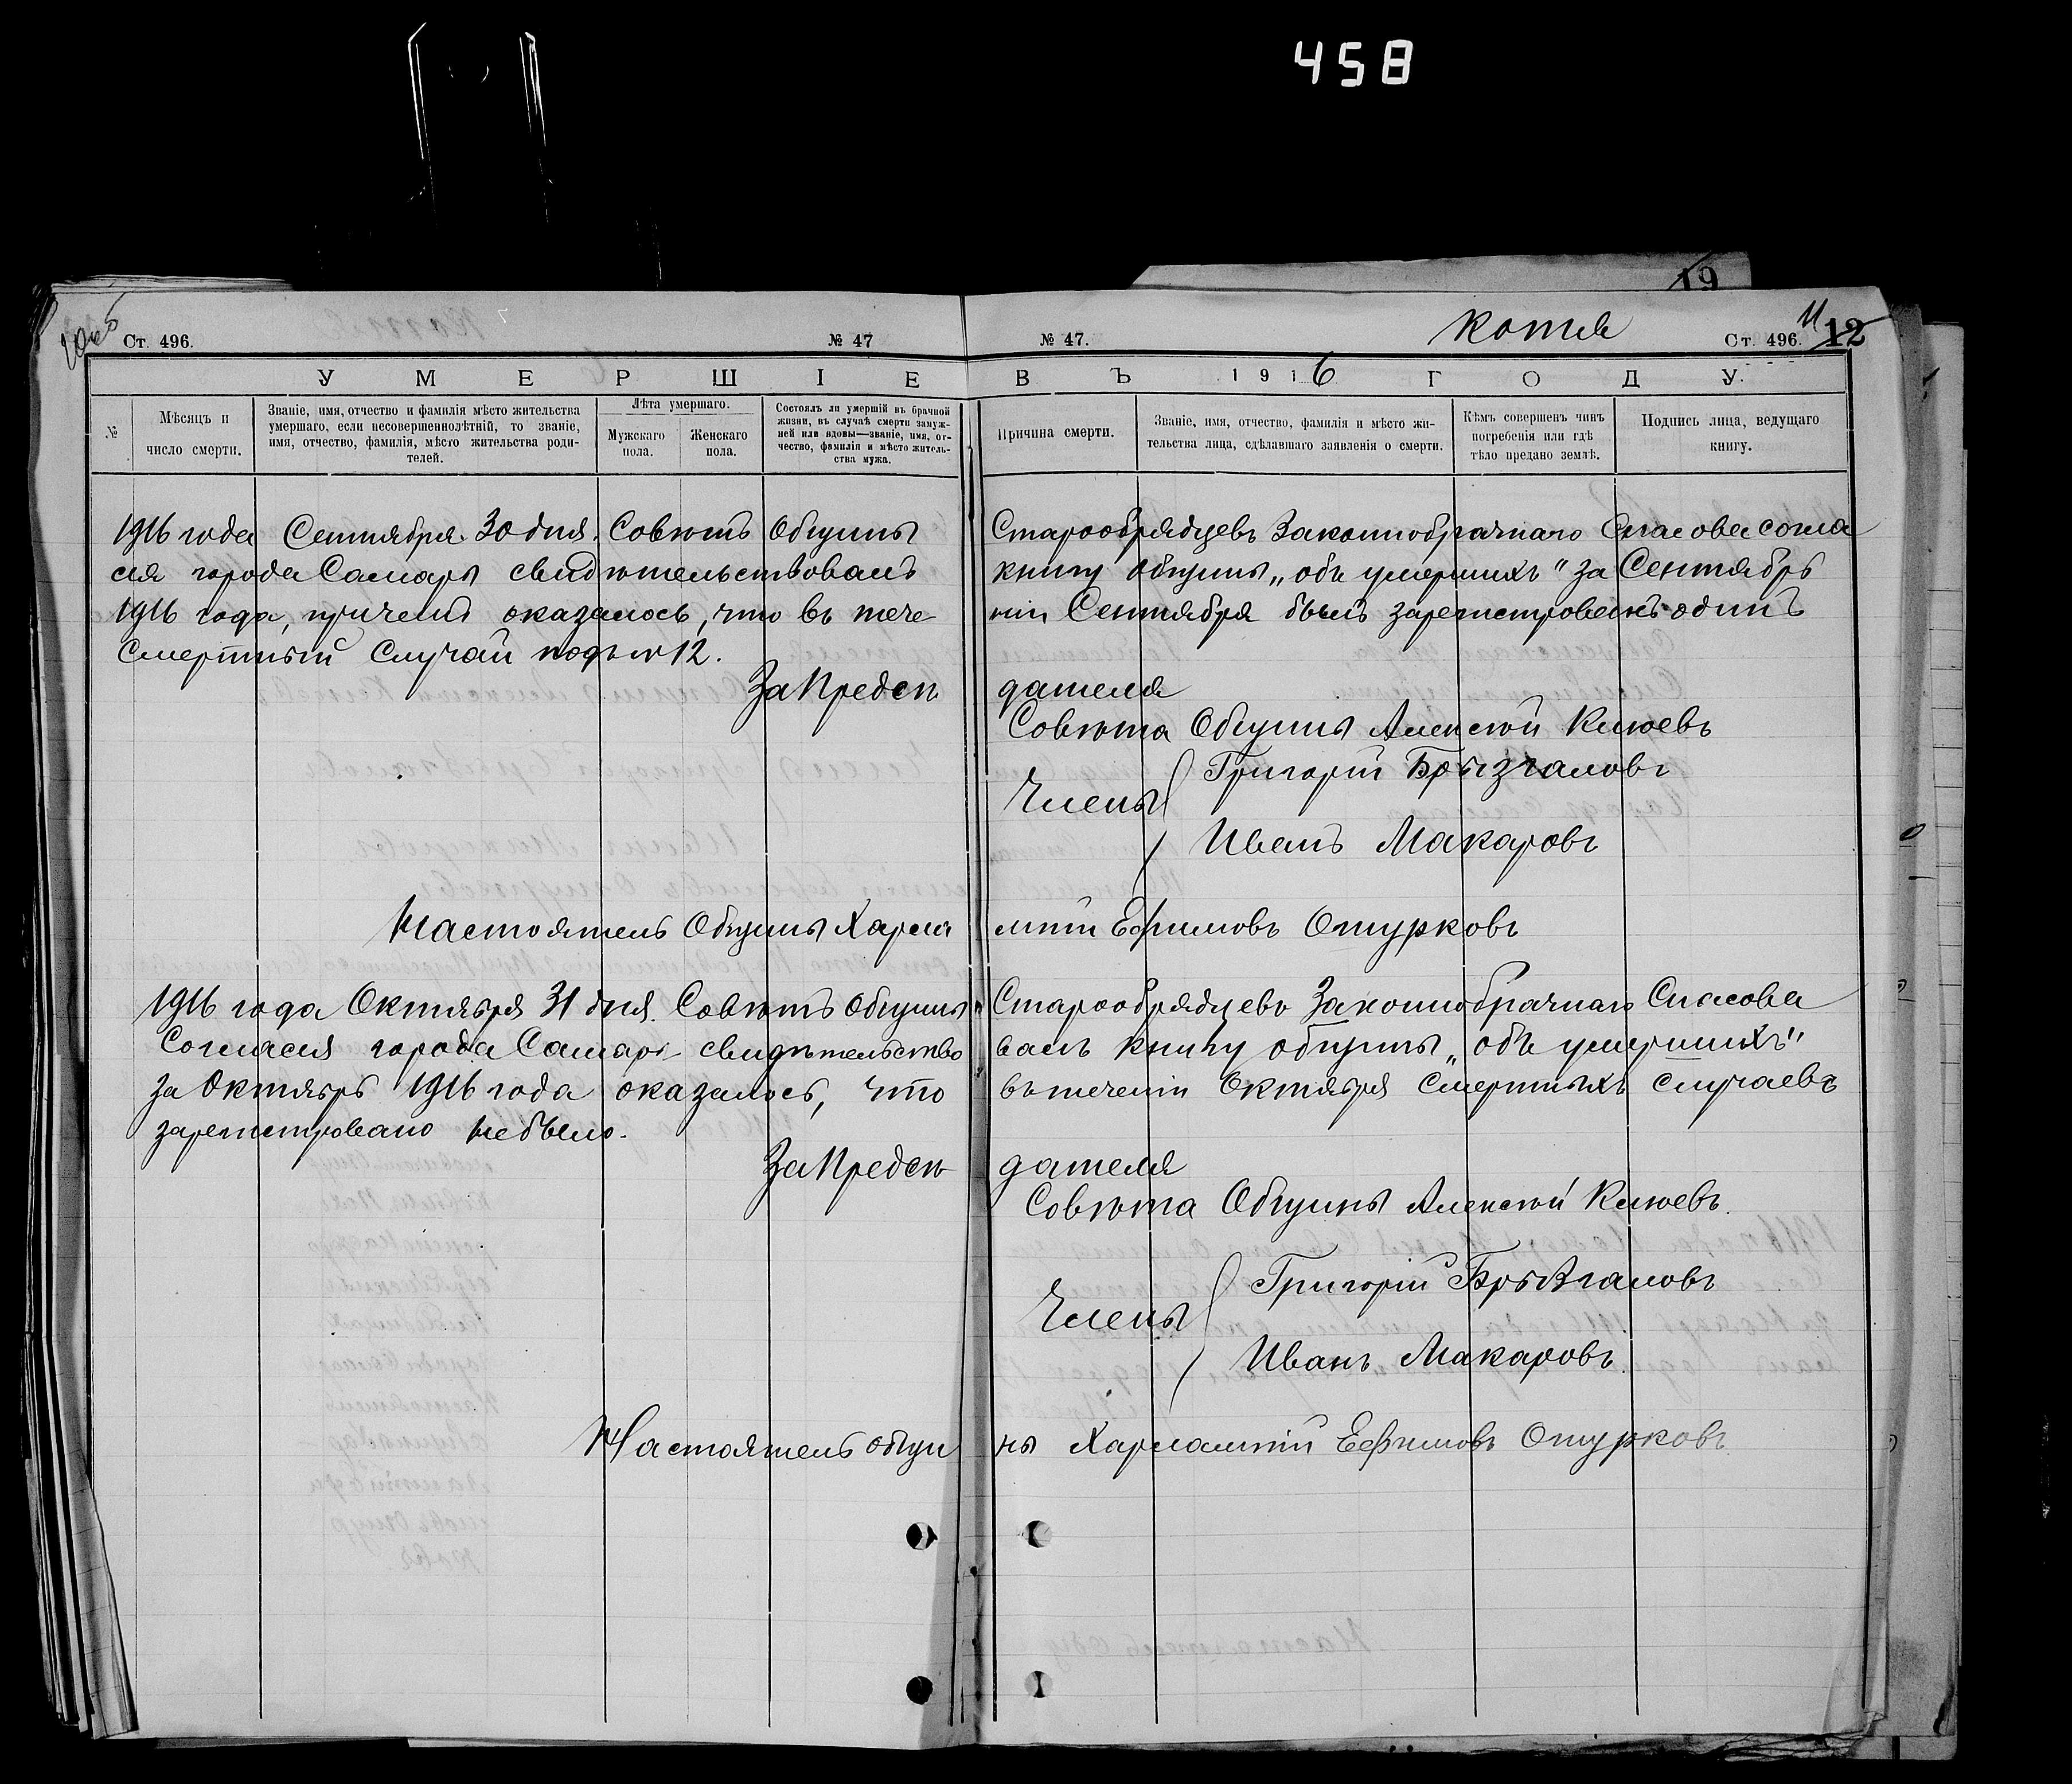 458
19
Ст. 496.
№ 47
№ 47.
копія
Ст. 496.
11
12
УМЕРШІЕ ВЪ 1916 ГОДУ.
№
Мѣсяцъ и число смерти.
Званіе, имя, отчество и фамилія мѣсто жительства умершаго, если несовершеннолѣтній, то званіе, имя, отчество, фамилія, мѣсто жительства родителей.
Лѣта умершаго.
Мужскаго пола.
Женскаго пола.
Состоялъ ли умершій въ брачной жизни, въ случаѣ смерти замужней или вдовы—званіе, имя, отчество, фамилія и мѣсто жительства мужа.
Причина смерти.
Званіе, имя, отчество, фамилія и мѣсто жительства лица, сдѣлавшаго заявленія о смерти.
Кѣмъ совершенъ чинъ погребенія или гдѣ тѣло предано землѣ.
Подпись лица, ведущаго книгу.
1916 года Сентября 30 дня. Совѣтъ Общины Старообрядцевъ Законнобрачнаго Спасова согла
сія города Самары свидѣтельствовалъ книгу общины „объ умершихъ" за Сентябрь
1916 года, причемъ оказалось, что въ тече- ніи Сентября былъ зарегистрованъ одинъ
Смертный Случай подъ № 12.
За Предсѣ дателя
Совѣта Общины Алексѣй Клюевъ
Члены
Григорій Брызгаловъ
Иванъ Макаровъ
Настоятель Общины Харла мпій Ефимовъ Отурковъ
1916 года Октября 31 дня. Совѣтъ Общины Старообрядцевъ Законнобрачнаго Спасова
Согласія города Самары свидѣтельство валъ книгу общины „объ умершихъ"
за Октябрь 1916 года оказалось, что въ теченіи Октября Смертныхъ случаевъ
зарегистровано не было.
За Предсѣ дателя
Совѣта Общины Алексѣй Клюевъ.
Члены
Григорій Брызгаловъ
Иванъ Макаровъ.
Настоятель общи ны Харлампій Ефимовъ Отурковъ.